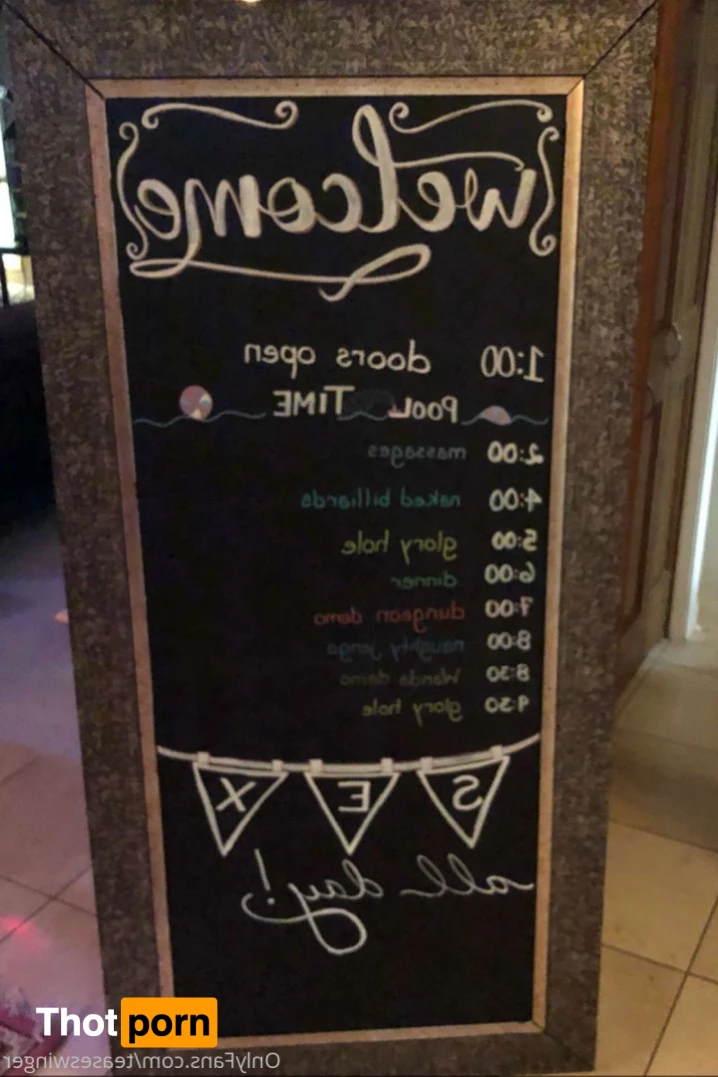 welcome
1:00 doors open
POOL TIME
2:00 massages
4:00 naked billiards
5:00 glory hole
6:00 dinner
7:00 dungeon demo
8:00 naughty jenga
8:30 Wands demo
9:30 glory hole
SEX
all day!
Thot porn
OnlyFans.com/teaseswinger